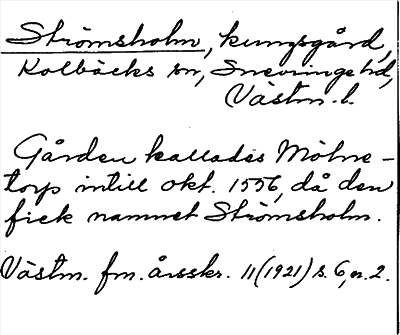 Strömsholm, kungsgård,
Kolbäcks sn, Snevringe hd,
Västm. l.
Gården kallades Mölne-
torp intill okt. 1556, då den
fick namnet Strömsholm.
Västm. fm. årsskr. 11 (1921) s. 6, n. 2.